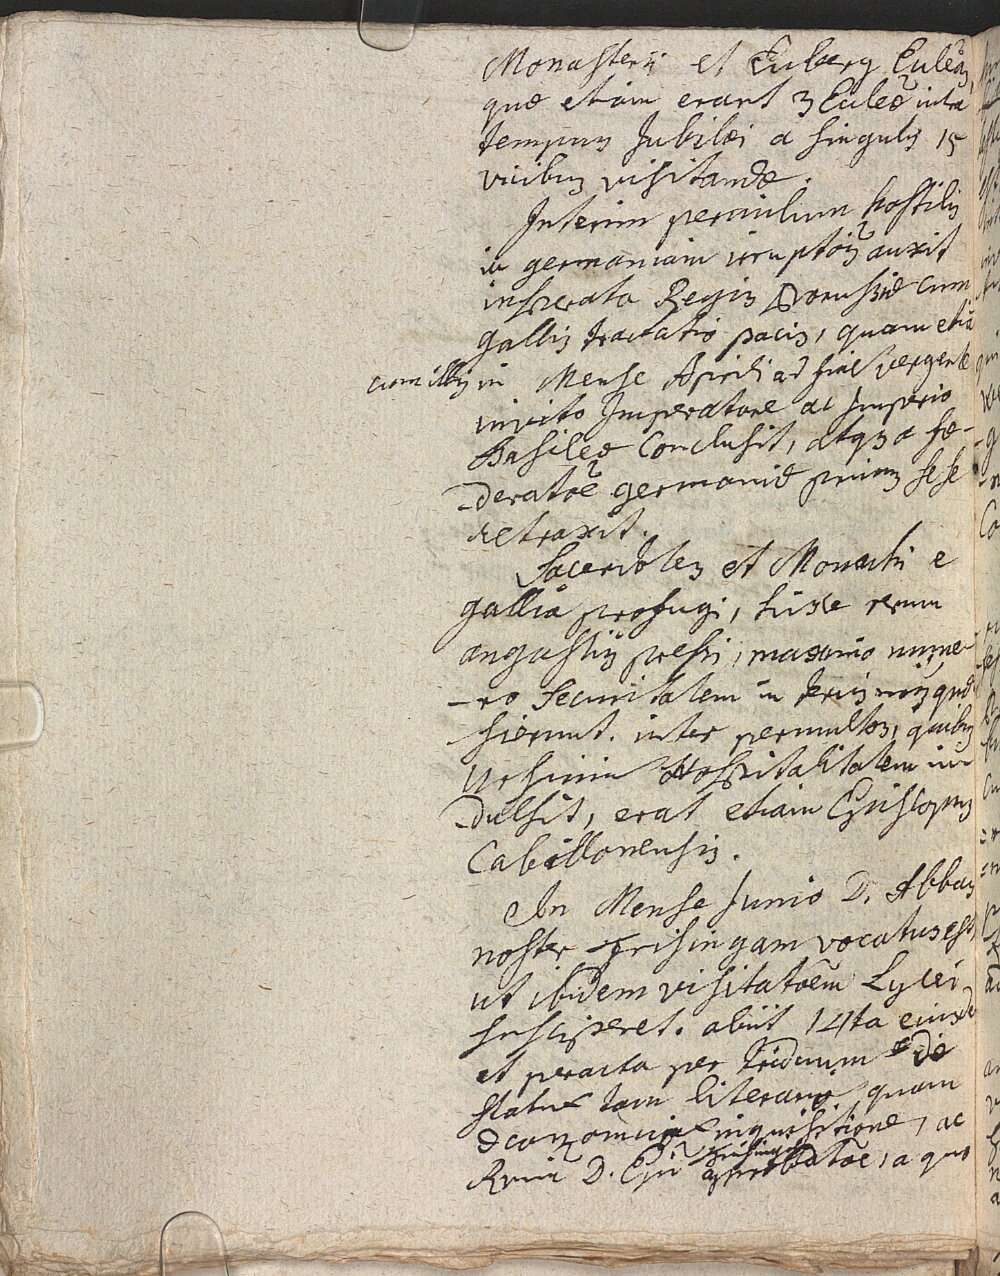 Monasterii et Euberg Eccleãs,
quæ etiam erant 3 Eccleæ intra
tempus Jubilæi a singulis 15
vicibus visitandæ.
Interim periculum hostilis
in germaniam irruptõis auxit
insperata Regis Borussiæ cum
gallis tractatio pacis, quam etiã
cum illis in Mense Aprili ad finẽ vergente
invito Imperatore ac Imperio
Basileæ conclusit, atq3 a fœ-
-deratõe germaniæ primus sese
retraxit.
Sacerdotes et Monachi e
gallia profugi, hisce rerum
angustiis pressi, maximo nume-
-ro securitatem in terris nris quæ-
sierunt. inter permultos, quibus
Ursinium Hospitalitatem in-
-dulsit, erat etiam Episcopus
Cabillonensis.
In Mense Junio D. Abbas
noster Frisingam vocatus est,
ut ibidem visitatõem Lycei
susciperet. abiit 14ta eiusd
et peracta per triduum de
statu tam literario quam
œconomico inquisitione, ac
Rmiũ D. Epĩ Frising approbatõe, a quo